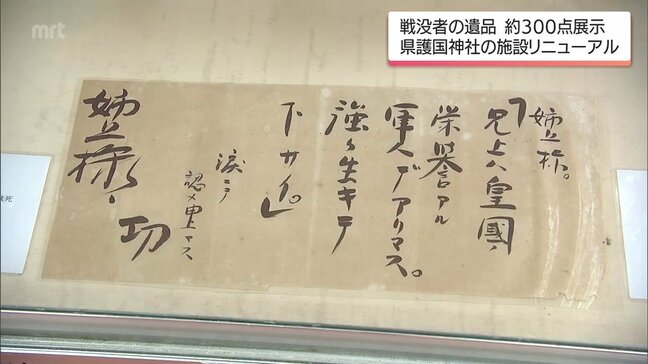 mrt
戦没者の遺品 約300点展示
県護国神社の施設リニューアル
姉上様。
「兄上ハ皇國ノ
栄誉アル
軍人デアリマス。
強ク生キテ
下サイ」
涙ニテ
認メ申上マス
功
姉上様